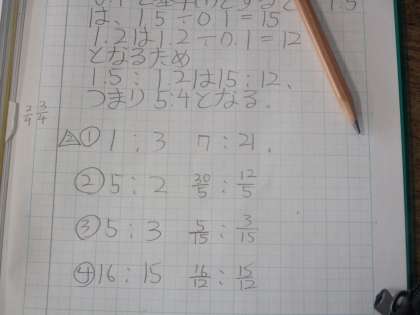 0.1を基準にすると 1.5
は、1.5÷0.1=15
1.2は1.2÷0.1=12
となるため
1.5:1.2は15:12、
つまり5:4となる。
2/9 3/4
△2 ① 1:3 7:21.
② 5:2 30/5:12/5
③ 5:3 5/15:3/15
④ 16:15 16/12:15/12